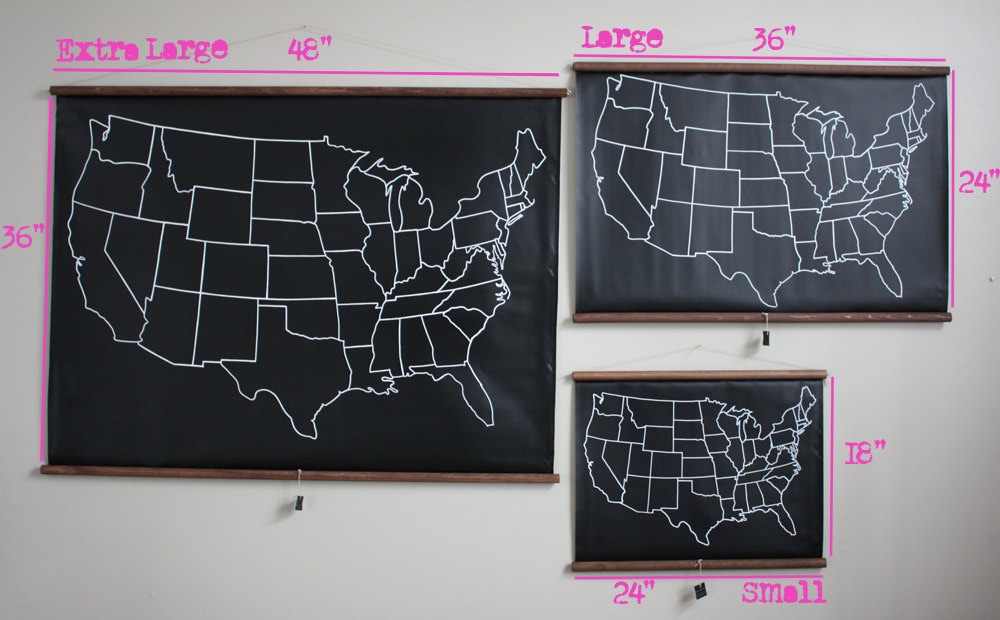 Extra Large 48"
36"
Large 36"
24"
18"
24" Small